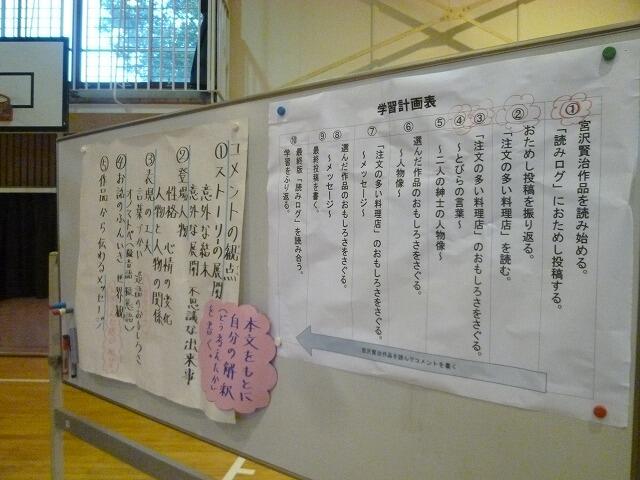 学習計画表
① 宮沢賢治作品を読み始める。
「読みログ」におためし投稿する。
② おためし投稿を振り返る。
「注文の多い料理店」を読む。
③ 「注文の多い料理店」のおもしろさをさぐる。
④ ～とびらの言葉～
⑤ ～二人の紳士の人物像～
⑥ 選んだ作品のおもしろさをさぐる。
～人物像～
⑦ 「注文の多い料理店」のおもしろさをさぐる。
～メッセージ～
⑧ 選んだ作品のおもしろさをさぐる。
～メッセージ～
⑨ 最終投稿を書く。
⑩ 最終版「読みログ」を読み合う。
学習をふり返る。
宮沢賢治作品を読んでコメントを書く
コメントの観点
①ストーリーの展開
意外な結末
意外な展開 不思議な出来事
②登場人物
性格 心情の変化
人物と人物の関係
③表現の工夫
言葉づかい 造語のおもしろさ
オノマトペ(擬音語 擬態語)
④お話のふんいき 世界観
⑤作品から伝わるメッセージ
本文をもとに
自分の解釈
(どう考えたか)
を書く。